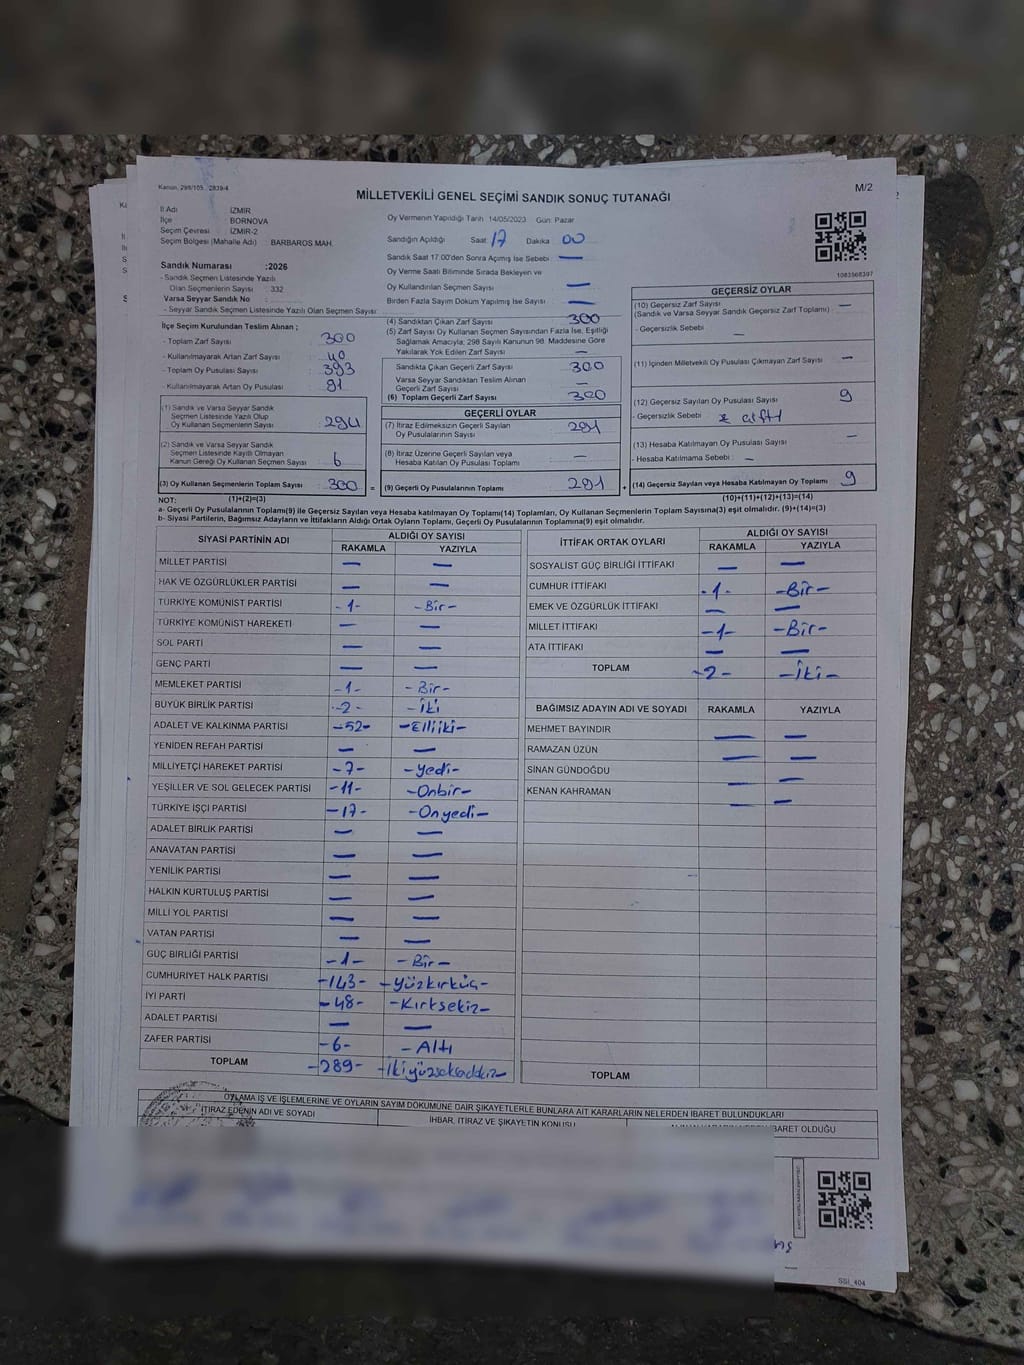 Kanun, 298/105, 2839/4
MİLLETVEKİLİ GENEL SEÇİMİ SANDIK SONUÇ TUTANAĞI
M/2
İl Adı İZMİR
İlçe BORNOVA
Seçim Çevresi İZMİR-2
Seçim Bölgesi (Mahalle Adı) BARBAROS MAH.
Oy Vermenin Yapıldığı Tarih 14/05/2023 Gün: Pazar
Sandığın Açıldığı Saat: 17 Dakika 00
Sandık Saat 17.00'den Sonra Açımış İse Sebebi —
Oy Verme Saati Bitiminde Sırada Bekleyen ve
Oy Kullandırılan Seçmen Sayısı —
Birden Fazla Sayım Döküm Yapılmış İse Sayısı —
1083568397
Sandık Numarası :2026
- Sandık Seçmen Listesinde Yazılı
Olan Seçmenlerin Sayısı : 332
Varsa Seyyar Sandık No :
- Seyyar Sandık Seçmen Listesinde Yazılı Olan Seçmen Sayısı
İlçe Seçim Kurulundan Teslim Alınan ;
- Toplam Zarf Sayısı : 300
- Kullanılmayarak Artan Zarf Sayısı : 40
- Toplam Oy Pusulası Sayısı : 393
- Kullanılmayarak Artan Oy Pusulası : 91
(1) Sandık ve Varsa Seyyar Sandık
Seçmen Listesinde Yazılı Olup
Oy Kullanan Seçmenlerin Sayısı : 294
(2) Sandık ve Varsa Seyyar Sandık
Seçmen Listesinde Kayıtlı Olmayan
Kanun Gereği Oy Kullanan Seçmen Sayısı : 6
(3) Oy Kullanan Seçmenlerin Toplam Sayısı : 300 =
(4) Sandıktan Çıkan Zarf Sayısı 300
(5) Zarf Sayısı Oy Kullanan Seçmen Sayısından Fazla İse, Eşitliği
Sağlamak Amacıyla; 298 Sayılı Kanunun 98. Maddesine Göre
Yakılarak Yok Edilen Zarf Sayısı : —
Sandıkta Çıkan Geçerli Zarf Sayısı : 300
Varsa Seyyar Sandıktan Teslim Alınan
Geçerli Zarf Sayısı : —
(6) Toplam Geçerli Zarf Sayısı : 300
GEÇERLİ OYLAR
(7) İtiraz Edilmeksizin Geçerli Sayılan
Oy Pusulalarının Sayısı : 291
(8) İtiraz Üzerine Geçerli Sayılan veya
Hesaba Katılan Oy Pusulası Toplamı : —
(9) Geçerli Oy Pusulalarının Toplamı : 291 +
GEÇERSİZ OYLAR
(10) Geçersiz Zarf Sayısı : —
(Sandık ve Varsa Seyyar Sandık Geçersiz Zarf Toplamı)
- Geçersizlik Sebebi : —
(11) İçinden Milletvekili Oy Pusulası Çıkmayan Zarf Sayısı : —
(12) Geçersiz Sayılan Oy Pusulası Sayısı : 9
- Geçersizlik Sebebi : çift
(13) Hesaba Katılmayan Oy Pusulası Sayısı : —
- Hesaba Katılmama Sebebi : —
(14) Geçersiz Sayılan veya Hesaba Katılmayan Oy Toplamı : 9
NOT: (1)+(2)=(3) (10)+(11)+(12)+(13)=(14)
a- Geçerli Oy Pusulalarının Toplamı(9) ile Geçersiz Sayılan veya Hesaba katılmayan Oy Toplamı(14) Toplamları, Oy Kullanan Seçmenlerin Toplam Sayısına(3) eşit olmalıdır. (9)+(14)=(3)
b- Siyasi Partilerin, Bağımsız Adayların ve İttifakların Aldığı Ortak Oyların Toplamı, Geçerli Oy Pusulalarının Toplamına(9) eşit olmalıdır.
SİYASİ PARTİNİN ADI ALDIĞI OY SAYISI
RAKAMLA YAZIYLA
MİLLET PARTİSİ — —
HAK VE ÖZGÜRLÜKLER PARTİSİ — —
TÜRKİYE KOMÜNİST PARTİSİ -1- -Bir-
TÜRKİYE KOMÜNİST HAREKETİ — —
SOL PARTİ — —
GENÇ PARTİ — —
MEMLEKET PARTİSİ -1- -Bir-
BÜYÜK BİRLİK PARTİSİ -2- -İki
ADALET VE KALKINMA PARTİSİ -52- -Elliiki-
YENİDEN REFAH PARTİSİ — —
MİLLİYETÇİ HAREKET PARTİSİ -7- -Yedi-
YEŞİLLER VE SOL GELECEK PARTİSİ -11- -Onbir-
TÜRKİYE İŞÇİ PARTİSİ -17- -Onyedi-
ADALET BİRLİK PARTİSİ — —
ANAVATAN PARTİSİ — —
YENİLİK PARTİSİ — —
HALKIN KURTULUŞ PARTİSİ — —
MİLLİ YOL PARTİSİ — —
VATAN PARTİSİ — —
GÜÇ BİRLİĞİ PARTİSİ -1- -Bir-
CUMHURİYET HALK PARTİSİ -143- -Yüzkırküç-
İYİ PARTİ -48- -Kırksekiz-
ADALET PARTİSİ — —
ZAFER PARTİSİ -6- -Altı
TOPLAM -289-
İTTİFAK ORTAK OYLARI ALDIĞI OY SAYISI
RAKAMLA YAZIYLA
SOSYALİST GÜÇ BİRLİĞİ İTTİFAKI — —
CUMHUR İTTİFAKI -1- -Bir-
EMEK VE ÖZGÜRLÜK İTTİFAKI — —
MİLLET İTTİFAKI -1- -Bir-
ATA İTTİFAKI — —
TOPLAM -2- -İki-
BAĞIMSIZ ADAYIN ADI VE SOYADI RAKAMLA YAZIYLA
MEHMET BAYINDIR — —
RAMAZAN ÜZÜN — —
SİNAN GÜNDOĞDU — —
KENAN KAHRAMAN — —
TOPLAM
OYLAMA İŞ VE İŞLEMLERİNE VE OYLARIN SAYIM DÖKÜMÜNE DAİR ŞİKAYETLERLE BUNLARA AİT KARARLARIN NELERDEN İBARET BULUNDUKLARI
İTİRAZ EDENİN ADI VE SOYADI
İHBAR, İTİRAZ VE ŞİKAYETİN KONUSU
İBARET OLDUĞU
SSİ_404